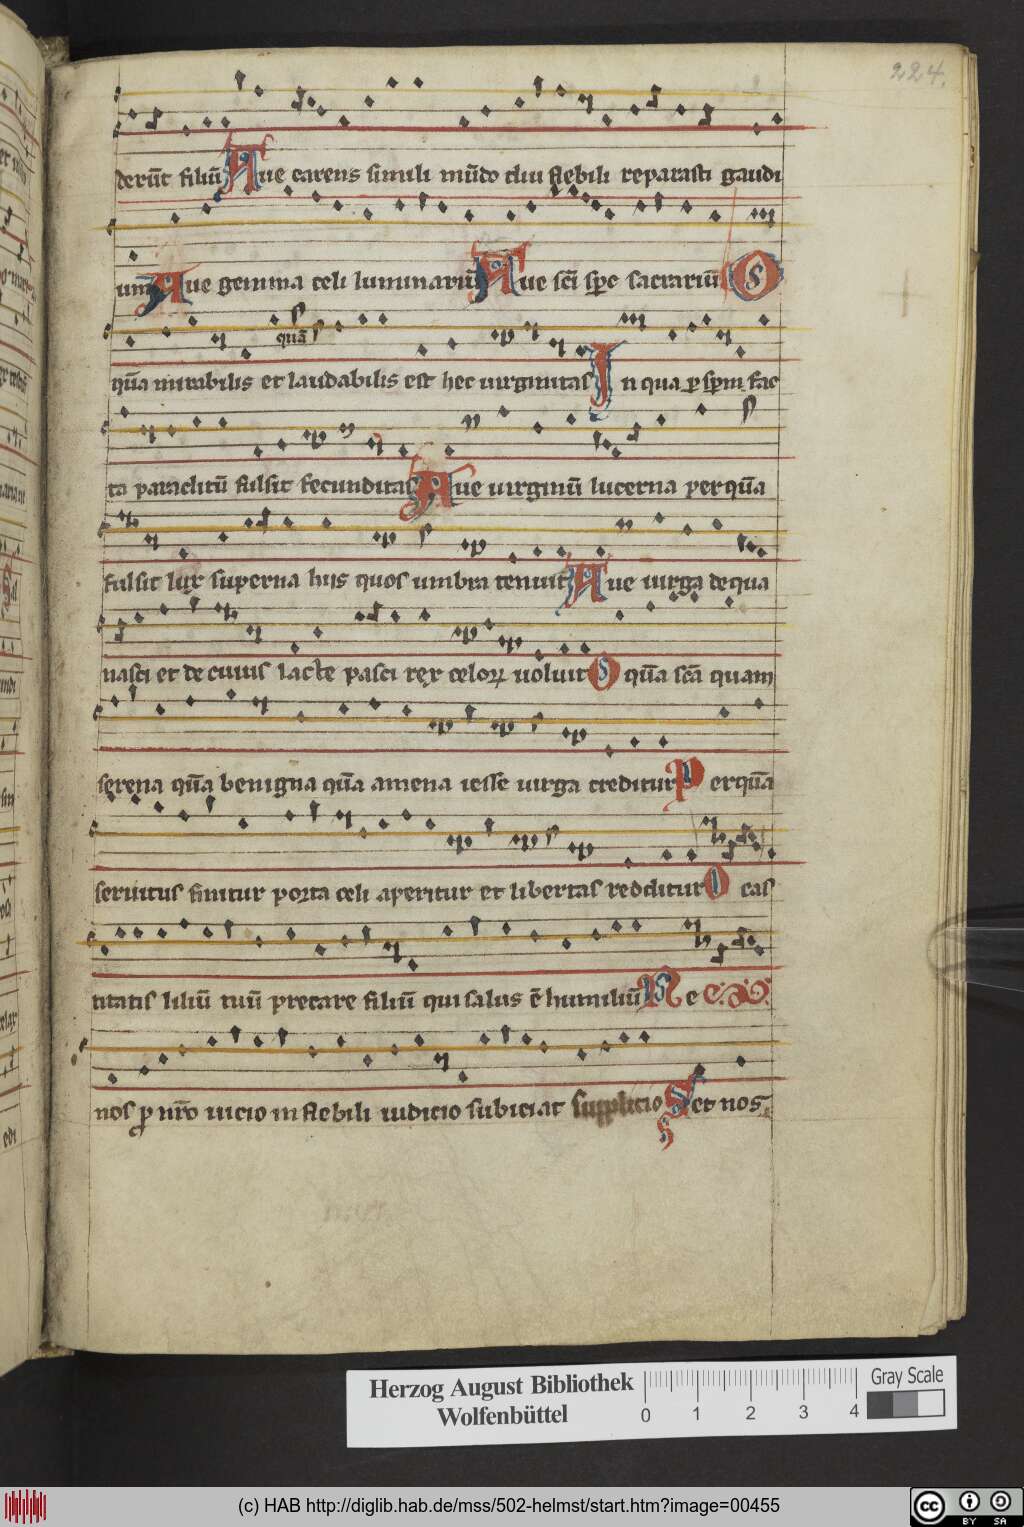 224.
derūt filiū Aue carens simili mūdo diu flebili reparasti gaudi
um Aue gemma celi luminariū Aue scī spc sacrariū O
quā
quā mirabilis et laudabilis est hec uirginitas In qua ꝑ spm fac
ta paraclitū fulsit fecunditas Aue uirginū lucerna per quā
fulsit lux superna hiis quos umbra tenuit Aue uirga de qua
nasci et de cuius lacte pasci rex celoꝝ uoluit O quā scā quam
serena quā benigna quā amena iesse uirga creditur Per quā
seruitus finitur porta celi aperitur et libertas redditur O cas
titatis liliū tuū precare filiū qui salus ē humiliū Ne
nos ꝑ nr̄o uicio in flebili iudicio subiciat supplicio Set nos
Herzog August Bibliothek
Wolfenbüttel
0 1 2 3 4
Gray Scale
(c) HAB http://diglib.hab.de/mss/502-helmst/start.htm?image=00455
cc BY SA